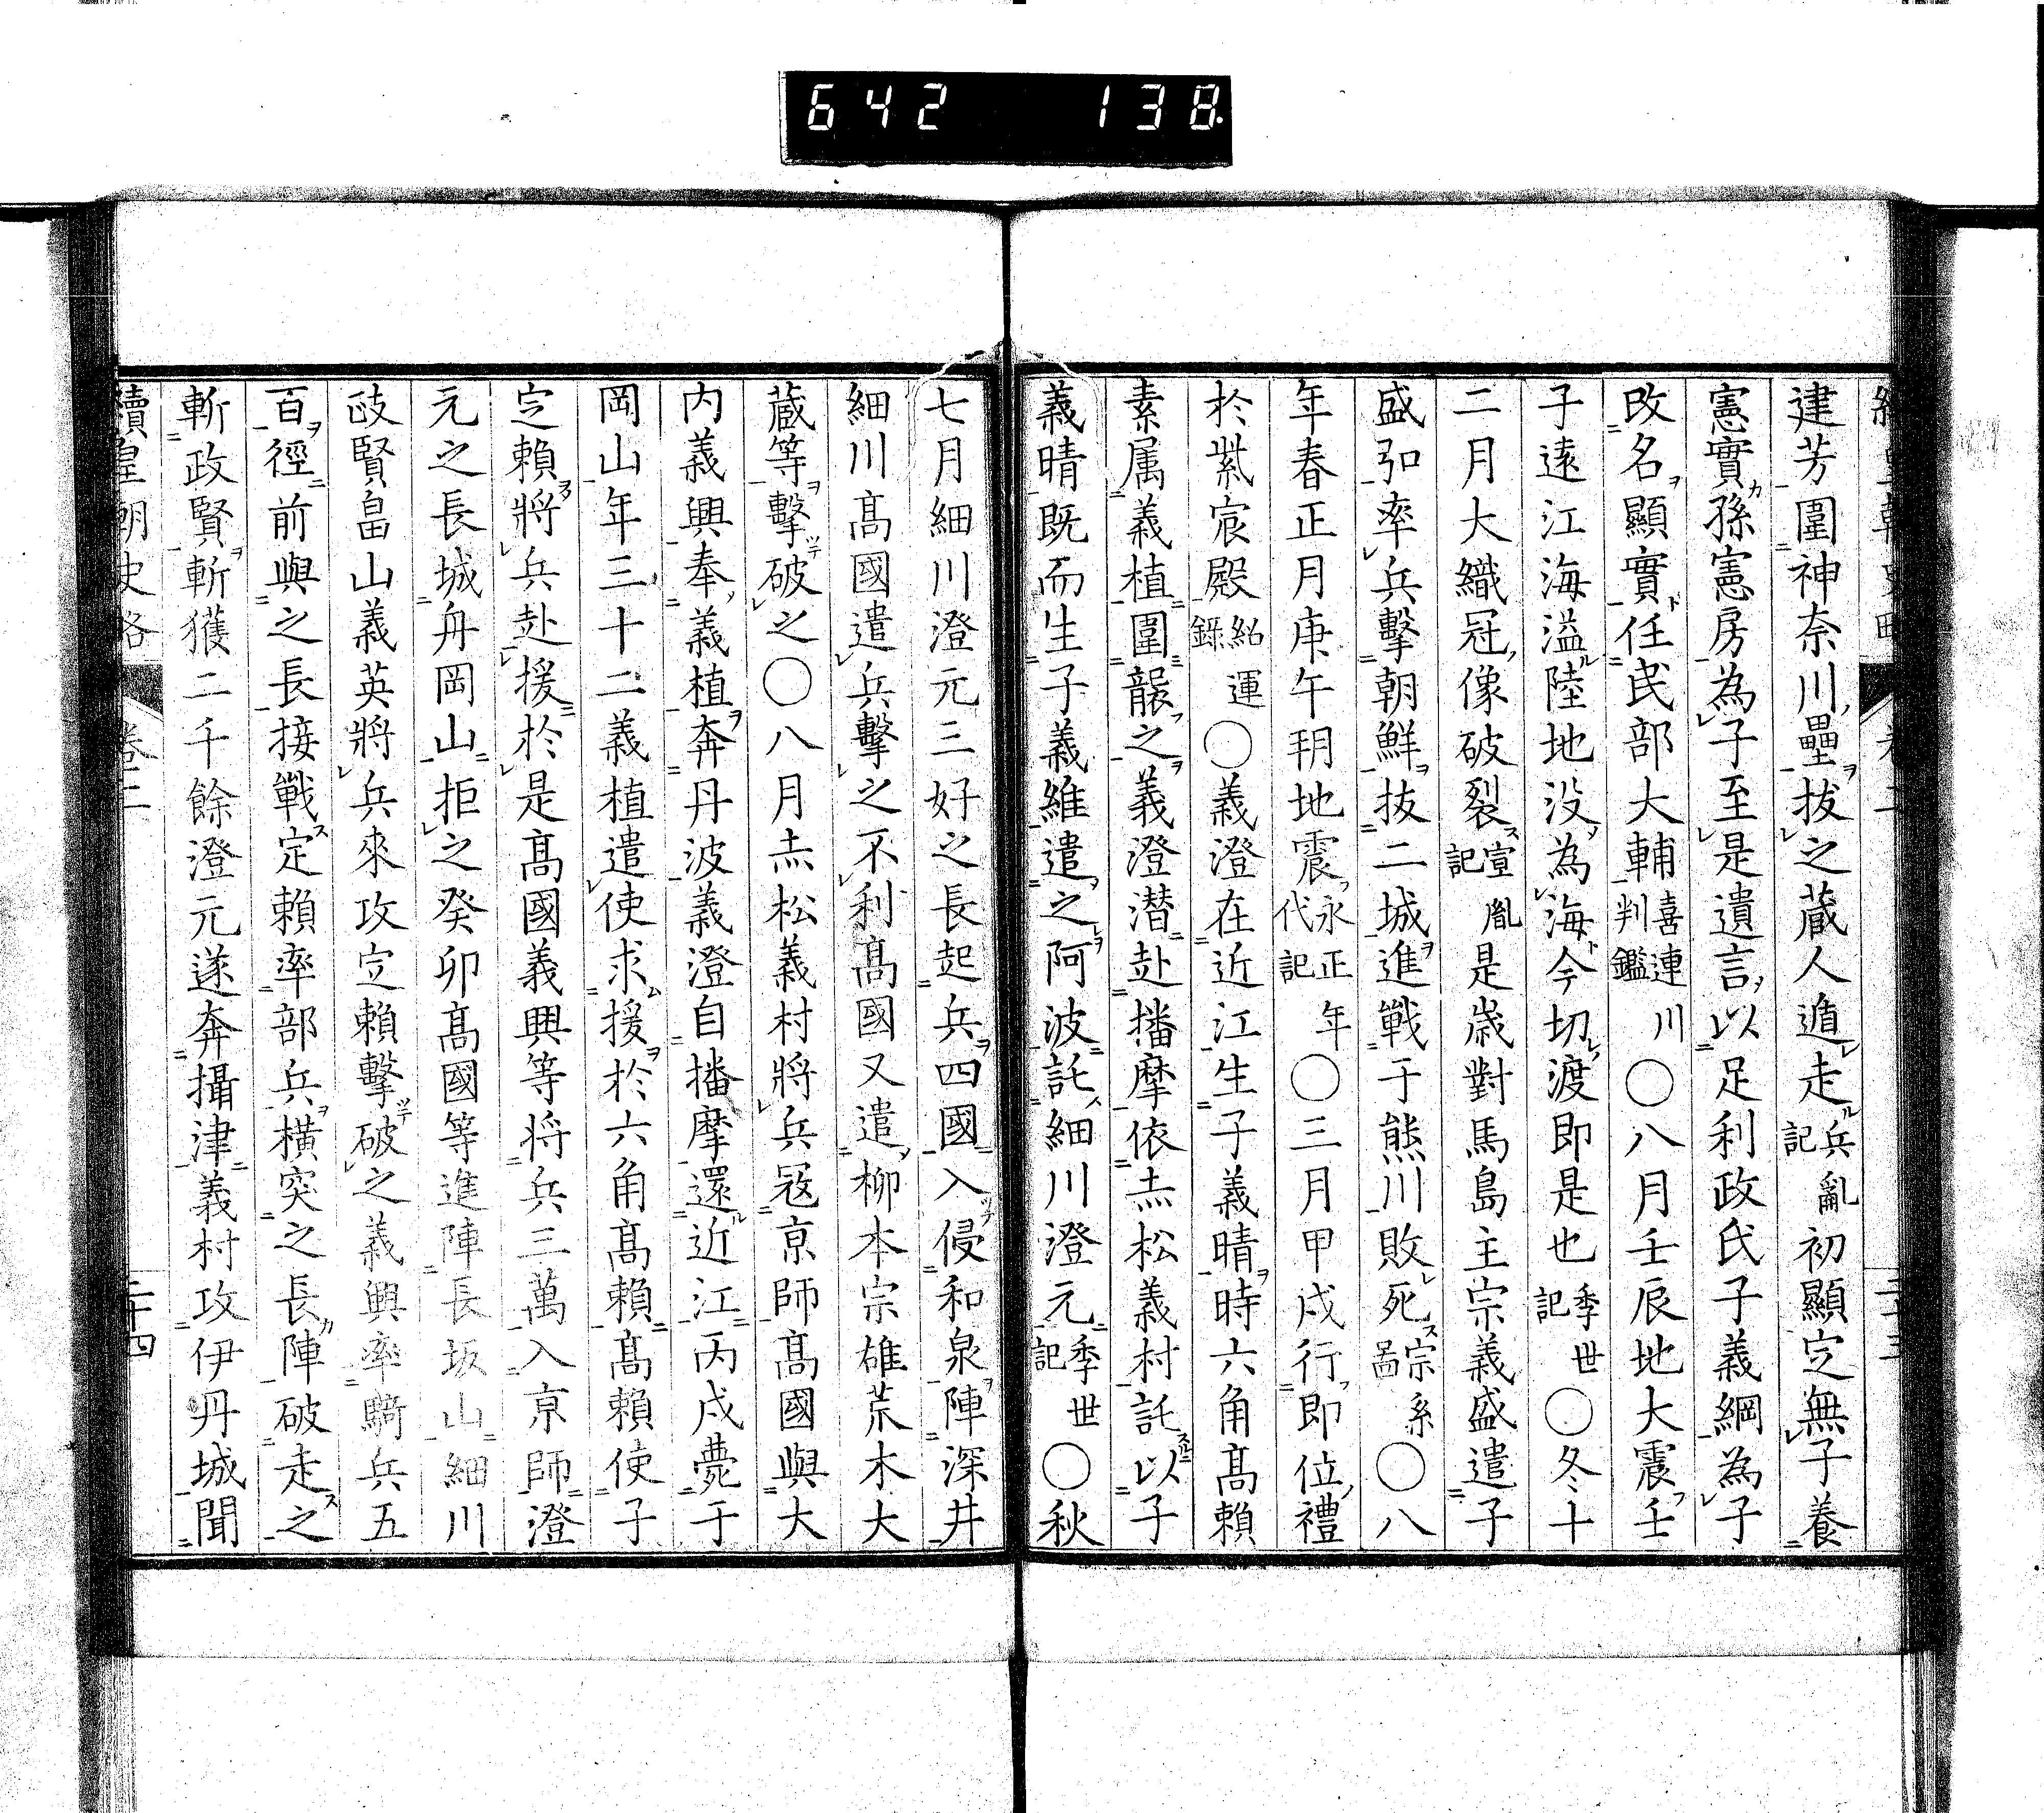 642 138
建芳圍神奈川壘拔之蔵人遁走兵亂記初顯定無子養
憲實孫憲房為子至是遺言以足利政氏子義綱為子
改名顯實任民部大輔喜連川判鑑〇八月壬辰地大震壬
子遠江海溢陸地没為海今切渡即是也季世記〇冬十
二月大織冠像破裂宣胤記是歳對馬島主宗義盛遣子
盛弘率兵擊朝鮮抜二城進戰于熊川敗死宗系啚〇八
年春正月庚午朔地震永正年代記〇三月甲戌行即位禮
於紫宸殿紹運錄〇義澄在近江生子義晴時六角髙賴
素属義植圍襲之義澄潜赴播摩依赤松義村託以子
義晴既而生子義維遣之阿波託細川澄元季世記〇秋
七月細川澄元三好之長起兵四國入侵和泉陣深井
細川髙國遣兵擊之不利髙國又遣柳本宗雄荒木大
蔵等擊破之〇八月赤松義村將兵冦京師髙國與大
内義興奉義植奔丹波義澄自播摩還近江丙戌薨于
岡山年三十二義植遣使求援於六角髙賴髙賴使子
定賴將兵赴援於是髙國義興等将兵三萬入京師澄
元之長城舟岡山拒之癸卯髙國等進陣長坂山細川
政賢畠山義英將兵來攻定賴擊破之義興率騎兵五
百徑前與之長接戰定賴率部兵横突之長陣破走之
斬政賢斬獲二千餘澄元遂奔攝津義村攻伊丹城聞
續皇朝史略 卷二 二十四